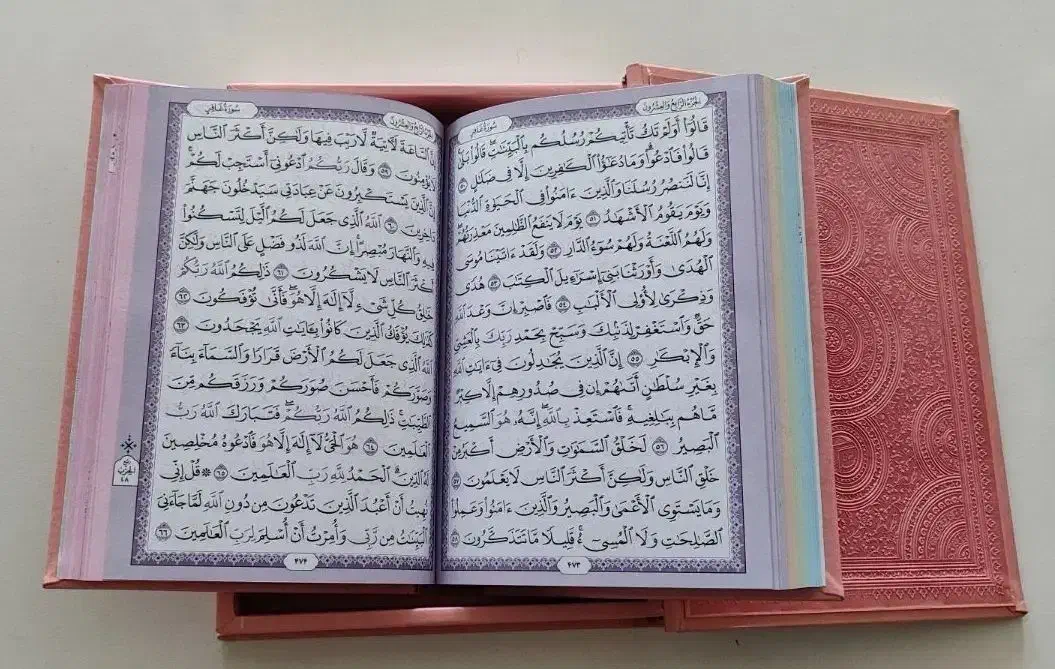 الجُزْءُ الرَّابِعُ وَالعِشْرُونَ
سُورَةُ غَافِرٍ
قَالُوٓاْ أَوَلَمْ تَكُ تَأْتِيكُمْ رُسُلُكُم بِٱلْبَيِّنَٰتِۖ قَالُواْ بَلَىٰۚ
قَالُواْ فَٱدْعُواْۗ وَمَا دُعَٰٓؤُاْ ٱلْكَٰفِرِينَ إِلَّا فِي ضَلَٰلٍ ۝٥٠
إِنَّا لَنَنصُرُ رُسُلَنَا وَٱلَّذِينَ ءَامَنُواْ فِي ٱلْحَيَوٰةِ ٱلدُّنْيَا
وَيَوْمَ يَقُومُ ٱلْأَشْهَٰدُ ۝٥١ يَوْمَ لَا يَنفَعُ ٱلظَّٰلِمِينَ مَعْذِرَتُهُمْۖ
وَلَهُمُ ٱللَّعْنَةُ وَلَهُمْ سُوٓءُ ٱلدَّارِ ۝٥٢ وَلَقَدْ ءَاتَيْنَا مُوسَى
ٱلْهُدَىٰ وَأَوْرَثْنَا بَنِيٓ إِسْرَٰٓءِيلَ ٱلْكِتَٰبَ ۝٥٣ هُدًى
وَذِكْرَىٰ لِأُوْلِي ٱلْأَلْبَٰبِ ۝٥٤ فَٱصْبِرْ إِنَّ وَعْدَ ٱللَّهِ
حَقٌّ وَٱسْتَغْفِرْ لِذَنۢبِكَ وَسَبِّحْ بِحَمْدِ رَبِّكَ بِٱلْعَشِيِّ
وَٱلْإِبْكَٰرِ ۝٥٥ إِنَّ ٱلَّذِينَ يُجَٰدِلُونَ فِيٓ ءَايَٰتِ ٱللَّهِ
بِغَيْرِ سُلْطَٰنٍ أَتَىٰهُمْ إِن فِي صُدُورِهِمْ إِلَّا كِبْرٌ
مَّا هُم بِبَٰلِغِيهِۚ فَٱسْتَعِذْ بِٱللَّهِۖ إِنَّهُۥ هُوَ ٱلسَّمِيعُ
ٱلْبَصِيرُ ۝٥٦ لَخَلْقُ ٱلسَّمَٰوَٰتِ وَٱلْأَرْضِ أَكْبَرُ مِنْ
خَلْقِ ٱلنَّاسِ وَلَٰكِنَّ أَكْثَرَ ٱلنَّاسِ لَا يَعْلَمُونَ ۝٥٧
وَمَا يَسْتَوِي ٱلْأَعْمَىٰ وَٱلْبَصِيرُ وَٱلَّذِينَ ءَامَنُواْ وَعَمِلُواْ
ٱلصَّٰلِحَٰتِ وَلَا ٱلْمُسِيٓءُۚ قَلِيلًا مَّا تَتَذَكَّرُونَ ۝٥٨
٤٧٣
الجُزْءُ الرَّابِعُ وَالعِشْرُونَ
سُورَةُ غَافِرٍ
إِنَّ ٱلسَّاعَةَ لَأٓتِيَةٌ لَّا رَيْبَ فِيهَا وَلَٰكِنَّ أَكْثَرَ ٱلنَّاسِ
لَا يُؤْمِنُونَ ۝٥٩ وَقَالَ رَبُّكُمُ ٱدْعُونِيٓ أَسْتَجِبْ لَكُمْۚ
إِنَّ ٱلَّذِينَ يَسْتَكْبِرُونَ عَنْ عِبَادَتِي سَيَدْخُلُونَ جَهَنَّمَ
دَاخِرِينَ ۝٦٠ ٱللَّهُ ٱلَّذِي جَعَلَ لَكُمُ ٱلَّيْلَ لِتَسْكُنُواْ
فِيهِ وَٱلنَّهَارَ مُبْصِرًاۚ إِنَّ ٱللَّهَ لَذُو فَضْلٍ عَلَى ٱلنَّاسِ وَلَٰكِنَّ
أَكْثَرَ ٱلنَّاسِ لَا يَشْكُرُونَ ۝٦١ ذَٰلِكُمُ ٱللَّهُ رَبُّكُمْ
خَٰلِقُ كُلِّ شَيْءٍ لَّآ إِلَٰهَ إِلَّا هُوَۖ فَأَنَّىٰ تُؤْفَكُونَ ۝٦٢
كَذَٰلِكَ يُؤْفَكُ ٱلَّذِينَ كَانُواْ بِـَٔايَٰتِ ٱللَّهِ يَجْحَدُونَ ۝٦٣
ٱللَّهُ ٱلَّذِي جَعَلَ لَكُمُ ٱلْأَرْضَ قَرَارًا وَٱلسَّمَآءَ بِنَآءً
وَصَوَّرَكُمْ فَأَحْسَنَ صُوَرَكُمْ وَرَزَقَكُم مِّنَ
ٱلطَّيِّبَٰتِۚ ذَٰلِكُمُ ٱللَّهُ رَبُّكُمْۖ فَتَبَارَكَ ٱللَّهُ رَبُّ
ٱلْعَٰلَمِينَ ۝٦٤ هُوَ ٱلْحَيُّ لَآ إِلَٰهَ إِلَّا هُوَ فَٱدْعُوهُ مُخْلِصِينَ
لَهُ ٱلدِّينَۗ ٱلْحَمْدُ لِلَّهِ رَبِّ ٱلْعَٰلَمِينَ ۝٦٥ ۞ قُلْ إِنِّي
نُهِيتُ أَنْ أَعْبُدَ ٱلَّذِينَ تَدْعُونَ مِن دُونِ ٱللَّهِ لَمَّا جَآءَنِيَ
ٱلْبَيِّنَٰتُ مِن رَّبِّي وَأُمِرْتُ أَنْ أُسْلِمَ لِرَبِّ ٱلْعَٰلَمِينَ ۝٦٦
٤٧٤